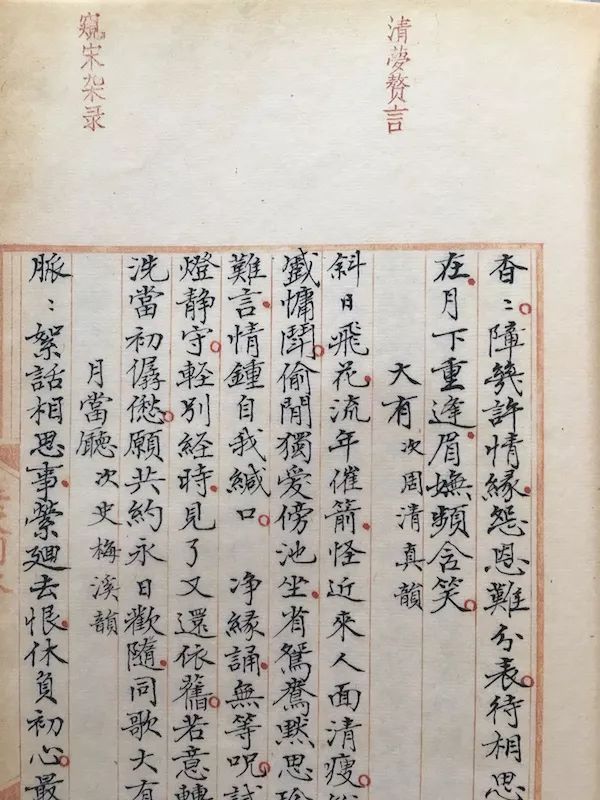 清夢贅言
窺宋杂录
杳：障幾許情緣怨恩難分表待相思
在月下重逢眉嫵頻含笑
大有 次周清真韻
斜日飛花流年催箭怪近來人面清瘦
慵鬪偷閒獨愛傍池坐省鴛鴦默思
難言情鍾自我緘口 净緣誦無等呪試
燈静守軽別経時見了又還依舊若意轉
洗當初僝僽願共約永日歡隨同歌大有
月當廳 次史梅溪韻
脈：絮話相思事縈廻去恨休負初心最